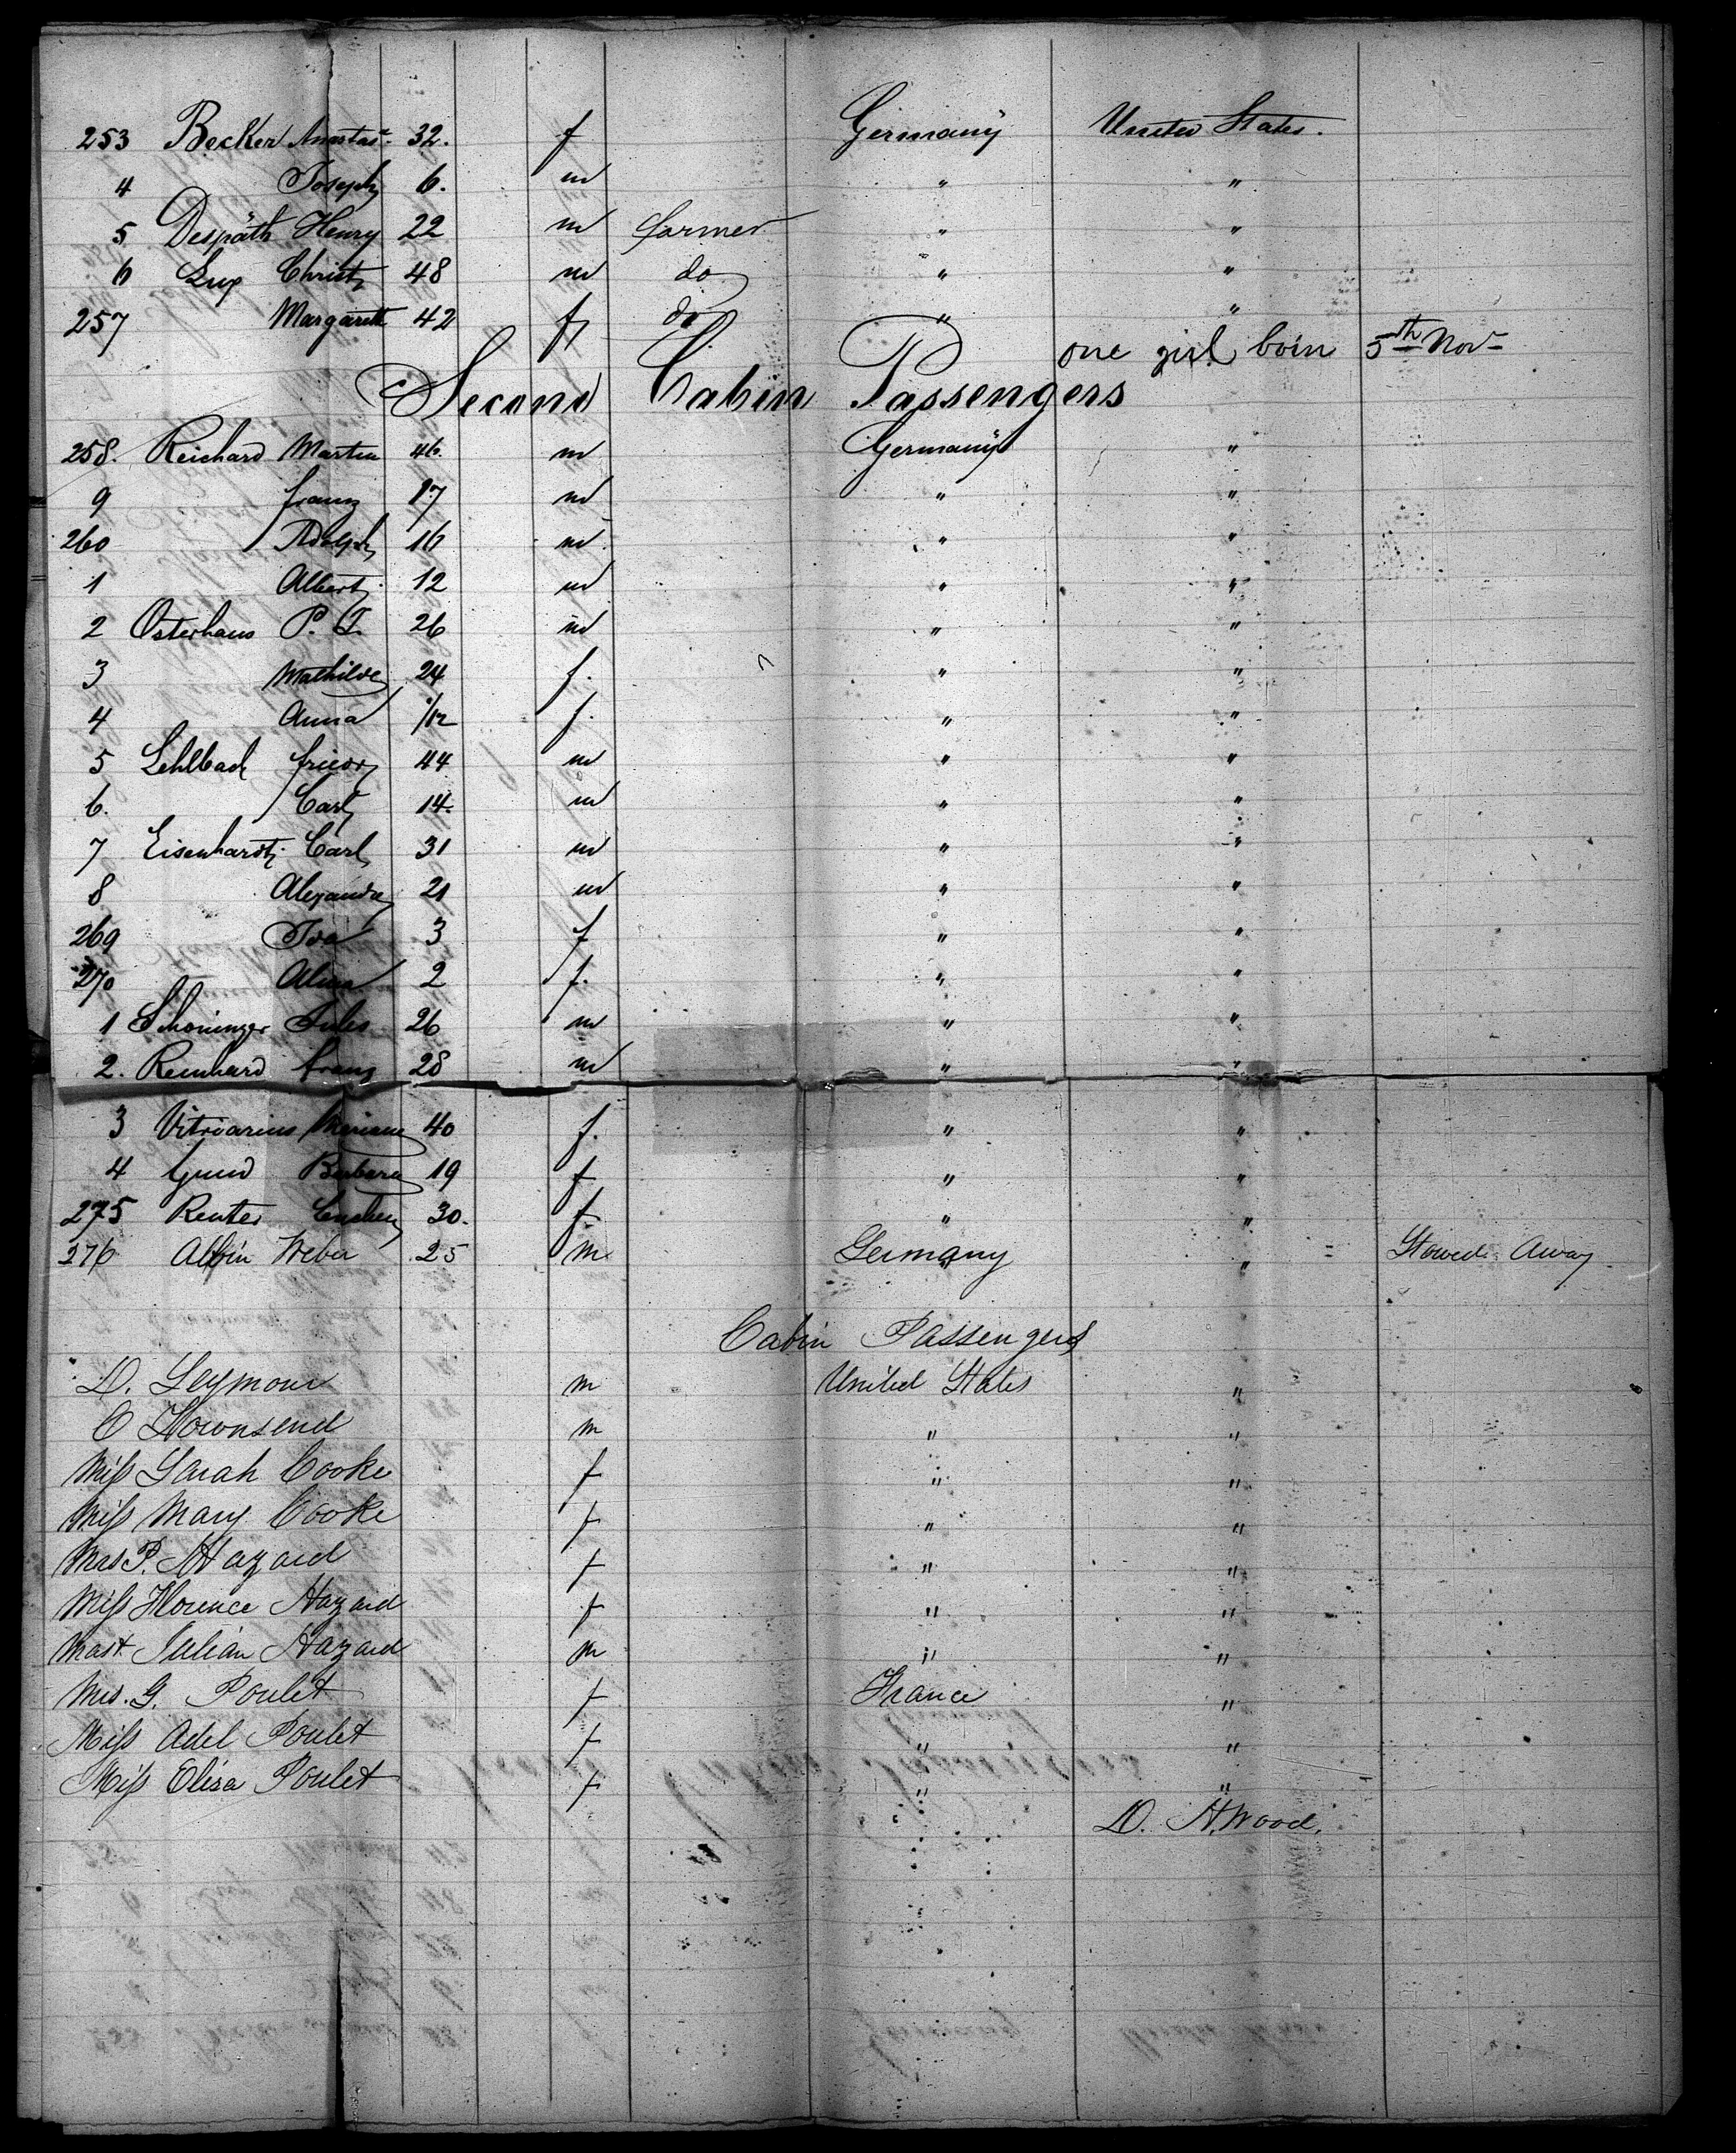 253 Becker Anastas. 32. f Germany United States.
4 Joseph 6. m " "
5 Despäth Henry 22 m farmer " "
6 Lux Christ 48 m do " "
257 Margareth 42 f do " "
one girl born 5th Nov
Second Cabin Passengers
258. Reichard Martin 46. m Germany "
9 franz 17 m " "
260 Adolph 16 m " "
1 Albert 12 m " "
2 Osterhaus P. J. 26 m " "
3 Mathilde 24 f. " "
4 Anna 1/12 f. " "
5 Lehlbach friedr 44 m " "
6. Carl 14. m " "
7 Eisenhardt Carl 31 m " "
8 Alexander 21 m " "
269 Ida 3 f " "
270 Alma 2 f. " "
1 Schoninger Jules 26 m " "
2. Reinhard franz 28 m " "
3 Vitriarius Mariane 40 f. " "
4 Gund Barbara 19 f " "
275 Renter 30. f " "
276 Albin Weber 25 m Germany " Stowed Away
Cabin Passengers
D. Seymour m United States "
C Townsend m " "
Miss Sarah Cooke f " "
Miss Mary Cooke f " "
Mrs P. Hazard f " "
Miss Florence Hazard f " "
Mast. Julian Hazard m " "
Mrs. G. Poulet f France "
Miss Adel Poulet f " "
Miss Elisa Poulet f " "
D. H. Wood.